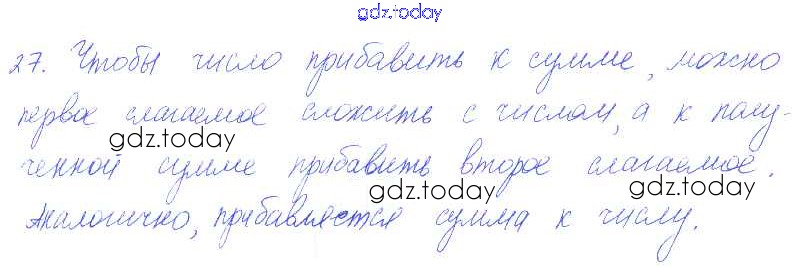 gdz.today
27. Чтобы число прибавить к сумме, можно
первое слагаемое сложить с числом, а к полу-
gdz.today
ченной сумме прибавить второе слагаемое.
gdz.today gdz.today
Аналогично, прибавляется сумма к числу.